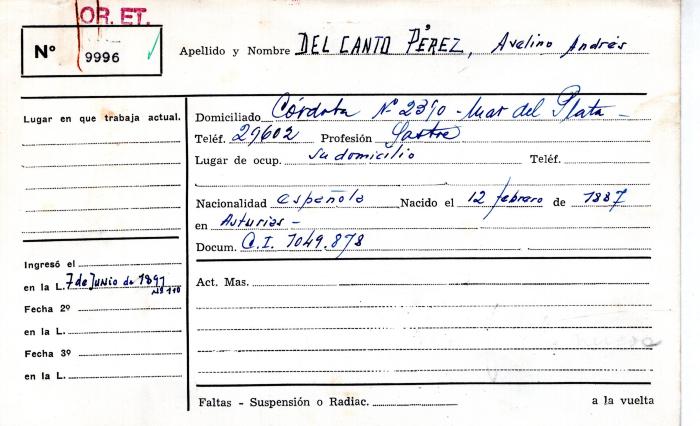 OR. ET.
Nº 9996
Apellido y Nombre DEL CANTO PÉREZ, Avelino Andrés
Lugar en que trabaja actual.
Domiciliado Córdoba Nº 2390 - Mar del Plata -
Teléf. 29602 Profesión Sastre
Lugar de ocup. su domicilio Teléf.
Nacionalidad española Nacido el 12 febrero de 1887
en Asturias -
Docum. C.I. 1049.878
Ingresó el
en la L. 7 de Junio de 1891
Nº 110
Fecha 2º
en la L.
Fecha 3º
en la L.
Act. Mas.
Faltas - Suspensión o Radiac. a la vuelta